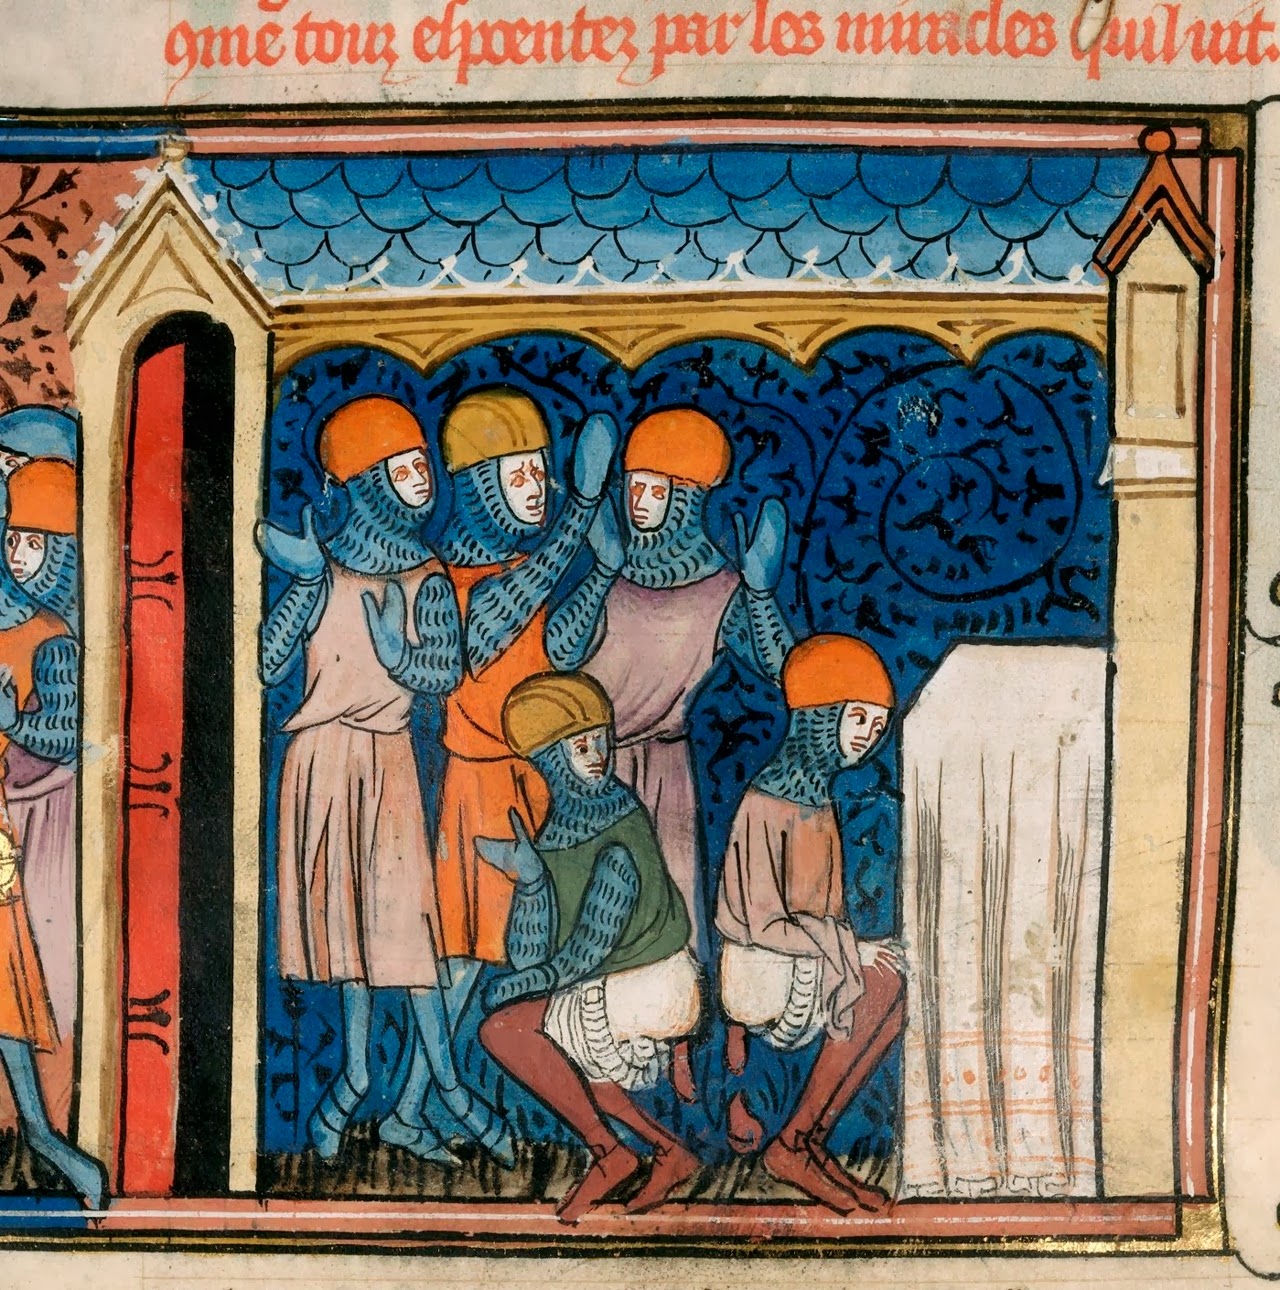 ꝯme᷑ touz espoentez par les miracles quil uit.